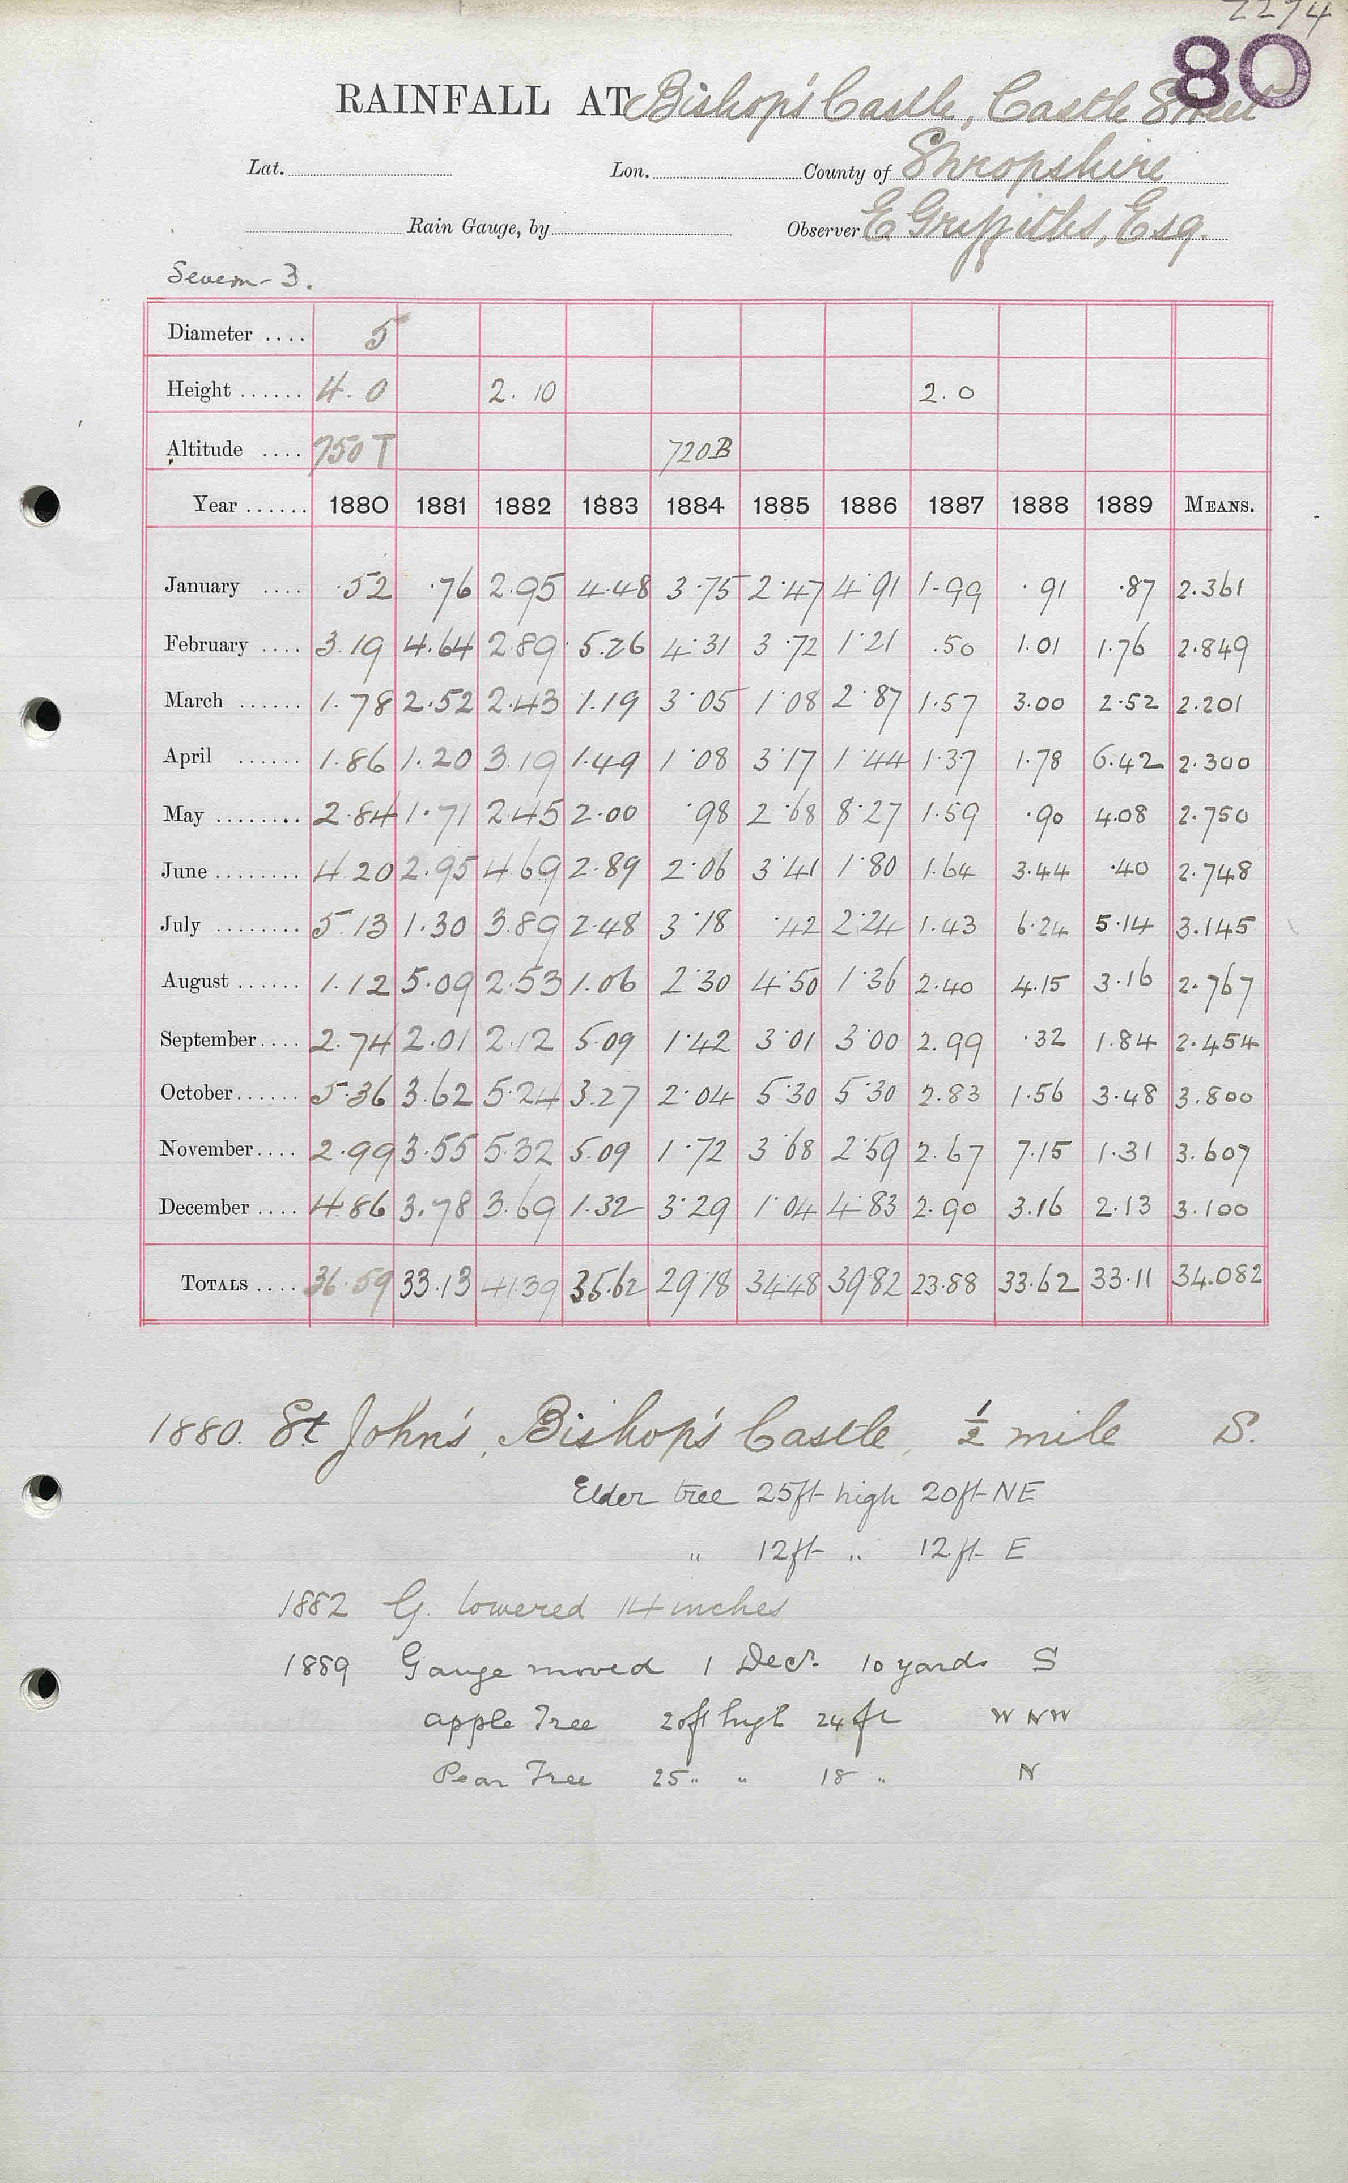 2274
80
RAINFALL AT Bishop's Castle, Castle Street
Lat. Lon. County of Shropshire
Rain Gauge, by Observer E Griffiths, Esq.
Severn - 3.
Diameter .... 5
Height ...... 4. 0 2. 10 2. 0
Altitude .... 750 T 720 B
Year ...... 1880 1881 1882 1883 1884 1885 1886 1887 1888 1889 MEANS.
January .... .52 .76 2.95 4.48 3.75 2.47 4.91 1.99 .91 .87 2.361
February .... 3.19 4.64 2.89 5.26 4.31 3.72 1.21 .50 1.01 1.76 2.849
March ...... 1.78 2.52 2.43 1.19 3.05 1.08 2.87 1.57 3.00 2.52 2.201
April ...... 1.86 1.20 3.19 1.49 1.08 3.17 1.44 1.37 1.78 6.42 2.300
May ........ 2.84 1.71 2.45 2.00 .98 2.68 8.27 1.59 .90 4.08 2.750
June ........ 4.20 2.95 4.69 2.89 2.06 3.41 1.80 1.64 3.44 .40 2.748
July ........ 5.13 1.30 3.89 2.48 3.18 .42 2.24 1.43 6.24 5.14 3.145
August ...... 1.12 5.09 2.53 1.06 2.30 4.50 1.36 2.40 4.15 3.16 2.767
September .... 2.74 2.01 2.12 5.09 1.42 3.01 3.00 2.99 .32 1.84 2.454
October ...... 5.36 3.62 5.24 3.27 2.04 5.30 5.30 2.83 1.56 3.48 3.800
November .... 2.99 3.55 5.32 5.09 1.72 3.68 2.59 2.67 7.15 1.31 3.607
December .... 4.86 3.78 3.69 1.32 3.29 1.04 4.83 2.90 3.16 2.13 3.100
TOTALS .... 36.59 33.13 41.39 35.62 29.18 34.48 39.82 23.88 33.62 33.11 34.082
1880. St John's, Bishop's Castle, ½ mile S.
Elder tree 25ft high 20ft NE
" 12ft " 12ft E
1882 G. lowered 14 inches
1889 Gauge moved 1 Decr. 10 yards S
apple Tree 20ft high 24 ft W NW
Pear Tree 25 " " 18 " N